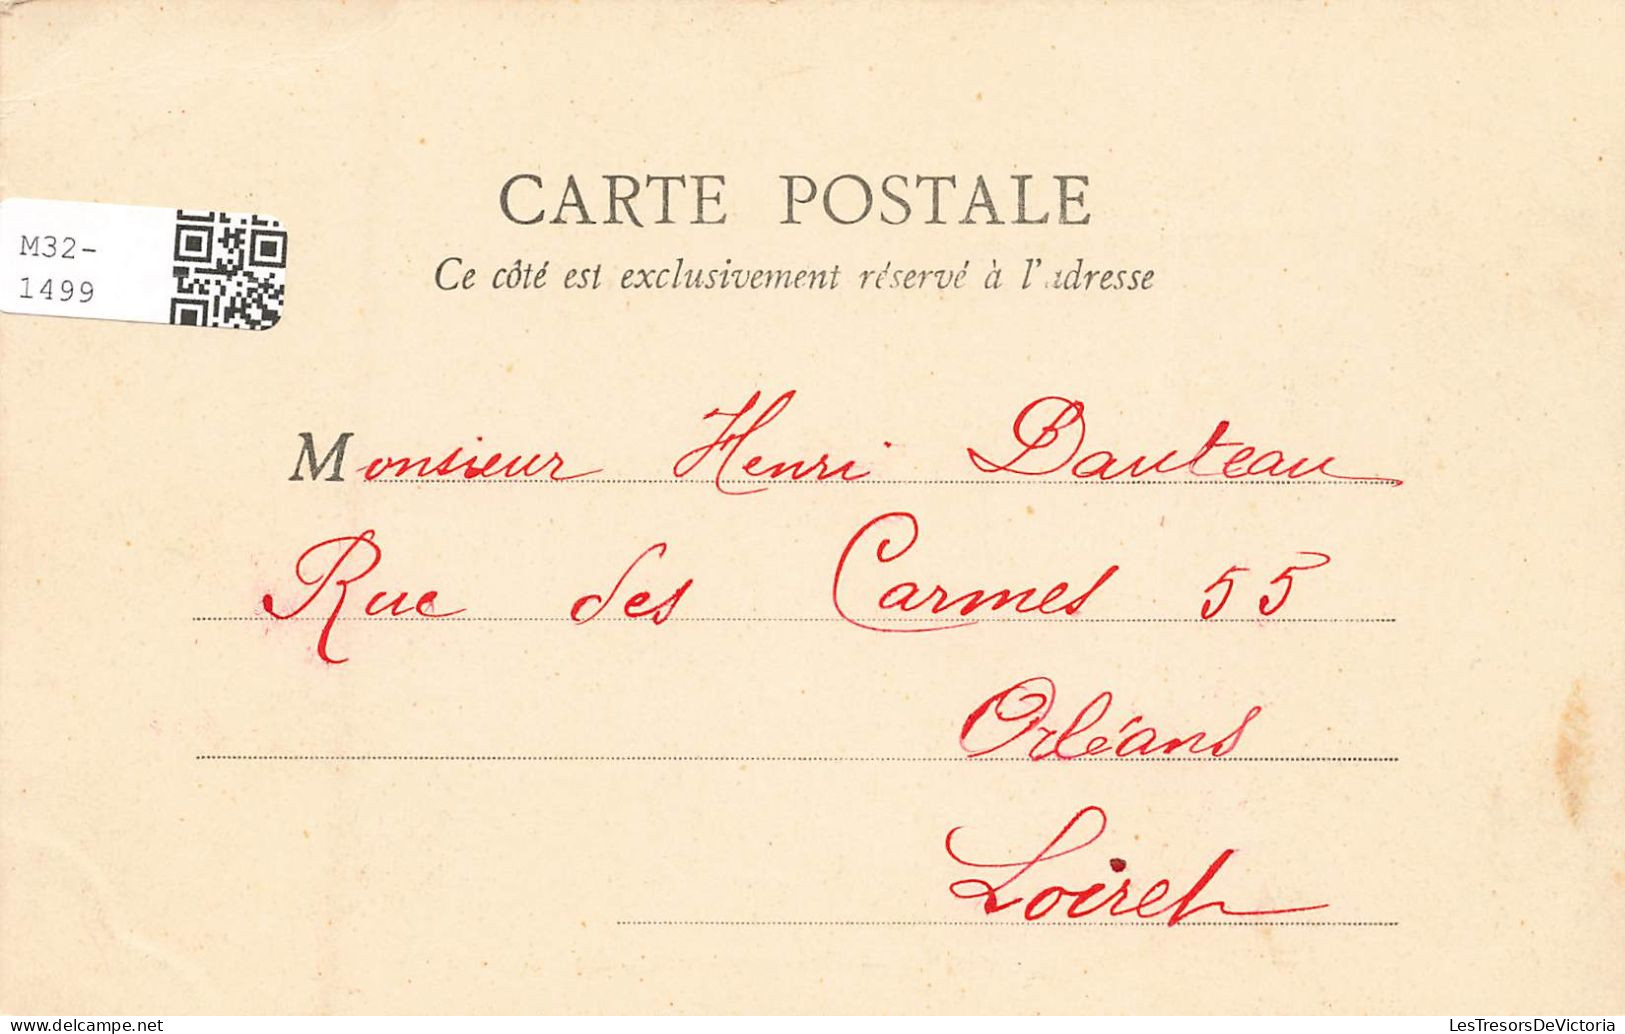 CARTE POSTALE
Ce côté est exclusivement réservé à l'adresse
M32-
1499
Monsieur Henri Dauteau
Rue des Carmes 55
Orléans
Loiret
LesTresorsDeVictoria